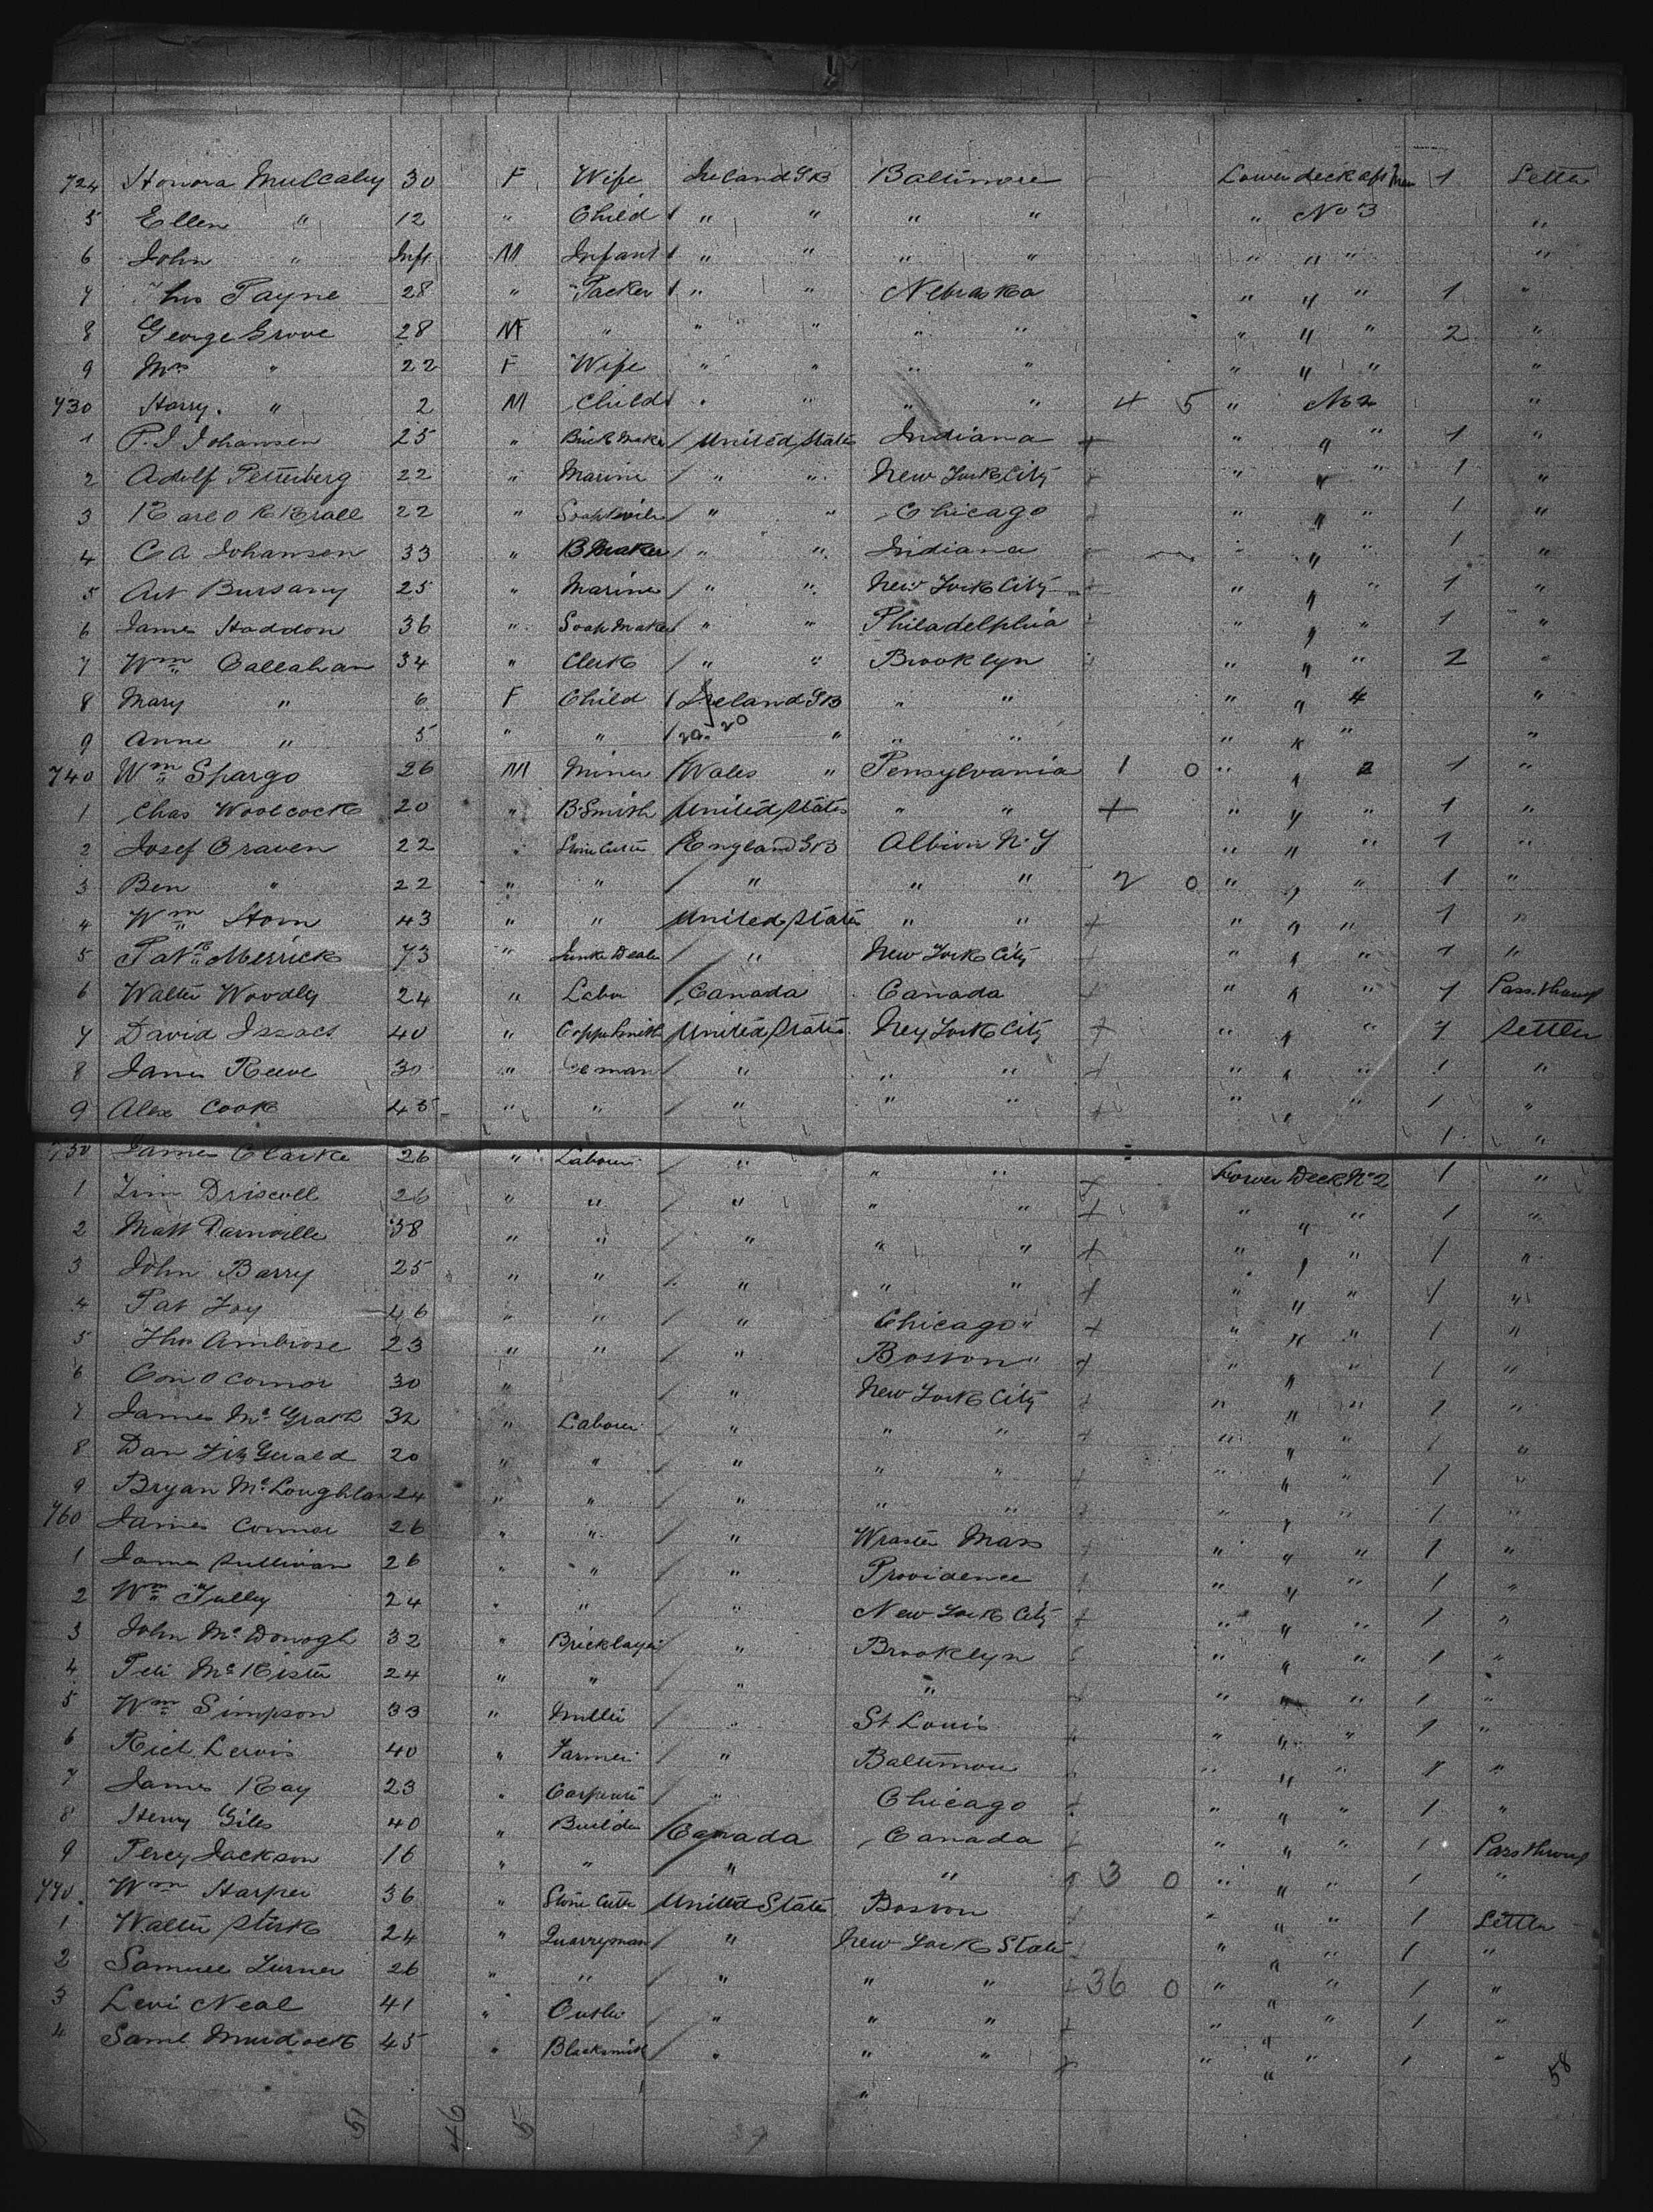 724 Honora Mulcahy 30 F Wife Ireland GB Baltimore Lower deck aft 1 Settler
5 Ellen " 12 " Child " " " " " No 3 "
6 John " Inft M Infant " " " " " " " "
7 Thos Payne 28 " Packer " " Nebraska " " " 1 "
8 George Grove 28 M " " " " " " " " 2 "
9 Mrs " 22 F Wife " " " " " " " "
730 Harry " 2 M Child " " " " 4 5 " No 2 "
1 P. J Johansen 25 " Brick Maker / United States Indiana + " " " 1 "
2 Adolf Petterberg 22 " Marine / " " New York City + " " " 1 "
3 22 " / " " Chicago + " " " 1 "
4 C A Johansen 33 " B Maker / " " Indiana " " " 1 "
5 Art Bursany 25 " Marine / " " New York City + " " " 1 "
6 James Haddon 36 " Soap Maker / " " Philadelphia + " " " 1 "
7 Wm Callahan 34 " Clerk / " " Brooklyn + " " " 2 "
8 Mary " 6 F Child / Ireland GB " " " " 4 "
9 Anne " 5 " " / " " " " " " "
740 Wm Spargo 26 M Miner / Wales " Pensylvania 1 0 " " 2 1 "
1 Chas Woolcock 20 " B. Smith / United States " " + " " " 1 "
2 Josef Craven 22 " Stone Cutter / England GB Albion N. Y " " " 1 "
3 Ben " 22 " " / " " " 2 0 " " " 1 "
4 Wm Horn 43 " " United States " " + " " " 1 "
5 Patk Merrick 73 " Junk Dealer / " New York City + " " " 1 "
6 Walter Woodly 24 " Labor / Canada Canada + " " " 1 Pass. through
7 David Issacs 40 " Copper Smith United States Ney York City + " " " 1 Settler
8 James Reeve 30 " / " " " + " " " 1 "
9 Alex Cook 45 " " / " " " + " " " 1 "
750 James Clarke 26 " Labourer / " " " + Lower Deck No 2 1 "
1 Tim Driscoll 26 " " / " " " + " " " 1 "
2 Matt Darnville 38 " " / " " " + " " " 1 "
3 John Barry 25 " " / " " " + " " " 1 "
4 Pat Foy 46 " " / " Chicago " + " " " 1 "
5 Thos Ambrose 23 " " / " Boston " + " " " 1 "
6 Con O Connor 30 " / " New York City + " " " 1 "
7 James McGrath 32 " Labourer / " " " + " " " 1 "
8 Dan FitzGerald 20 " " / " " " + " " " 1 "
9 Bryan McLoughlan 24 " " / " " " + " " " 1 "
760 James Connor 26 " " / " Wraster Mass + " " " 1 "
1 James Sullivan 26 " " / " Providence + " " " 1 "
2 Wm Tully 24 " " / " New York City + " " " 1 "
3 John McDonogh 32 " Bricklayer / " Brooklyn + " " " 1 "
4 Peter McKister 24 " " / " " + " " " 1 "
5 Wm Simpson 33 " Miller / " St Louis + " " " 1 "
6 Rich Lewis 40 " Farmer / " Baltimore + " " " 1 "
7 James Kay 23 " Carpenter / " Chicago + " " " 1 "
8 Henry Giles 40 " Builder / Canada Canada + " " " 1 Pass through
9 Percy Jackson 16 " " " " + 3 0 " " " 1 "
770 Wm Harper 36 " Stone Cutter United States Boston + " " " 1 Settler
1 Walter Stirk 24 " Quarryman / " New York State + " " " 1 "
2 Samuel Turner 26 " " / " " " + 36 0 " " " 1 "
3 Levi Neal 41 " Cutler / " " " + " " " 1 "
4 Saml Murdock 45 " Blacksmith / " " " + " " " 1 "
58
51 46 5